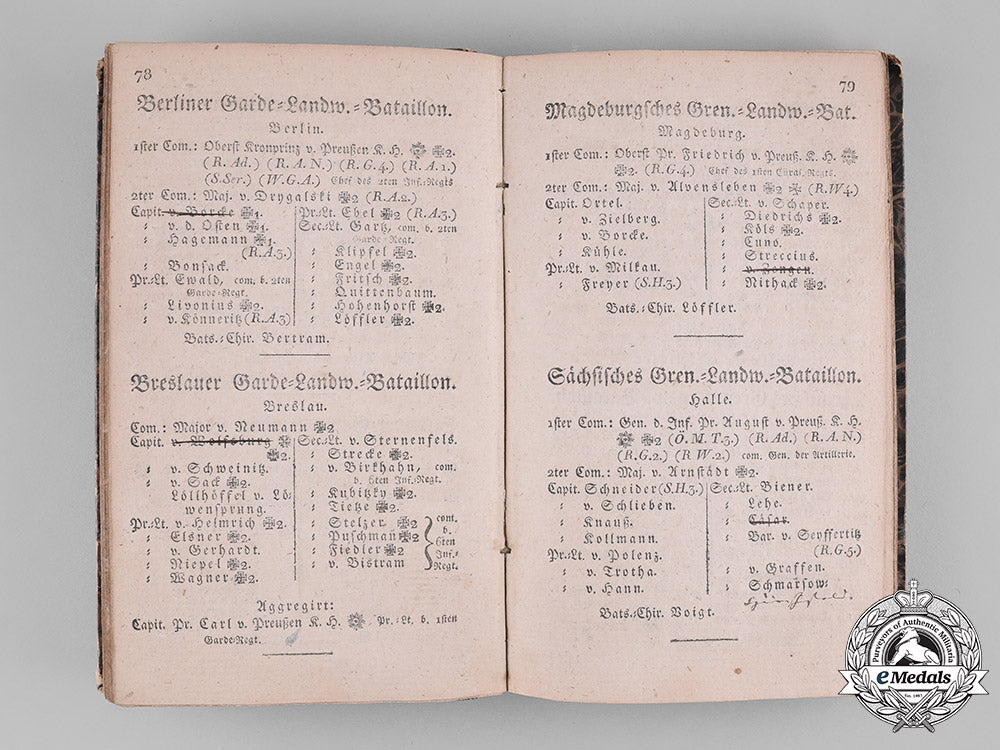 78
Berliner Garde-Landw.-Bataillon.
Berlin.
1ster Com.: Oberst Kronprinz v. Preußen K. H. 2.
(R. Ad.) (R. A. N.) (R. G. 4.) (R. A. 1.)
(S. Ser.) (W. G. A.) Chef des 2ten Inf.-Regts
2ter Com.: Maj. v. Drygalski 2 (R. A. 2.)
Capit. v. Borcke 1.
v. d. Osten 1.
Hagemann 1.
(R. A. 3.)
Bonsack.
Pr.-Lt. Ewald, com. b. 2ten
Garde-Regt.
Livonius 2.
v. Könneritz (R. A. 3)
Pr.-Lt. Ebel 2 (R. A. 3.)
Sec.-Lt. Gartz, com. b. 2ten
Garde-Regt.
Klipfel 2.
Engel 2.
Fritsch 2.
Quittenbaum.
Hohenhorst 2.
Löffler 2.
Bats.-Chir. Bertram.
Breslauer Garde-Landw.-Bataillon.
Breslau.
Com.: Major v. Neumann 2
Capit. v. Wolfsburg
2.
v. Schweinitz.
v. Sack 2.
Löllhöffel v. Lö-
wensprung.
Pr.-Lt. v. Helmrich 2.
Elsner 2.
v. Gerhardt.
Niepel 2.
Wagner 2.
Sec.-Lt. v. Sternenfels.
Strecke 2.
v. Birkhahn, com.
b. 6ten Inf.-Regt.
Kubitzky 2.
Tietze 2.
Stelzer 2
Puschman 2
Fiedler 2
v. Bistram
com.
b.
6ten
Inf.-
Regt.
Aggregirt:
Capit. Pr. Carl v. Preußen K. H. Pr.-Lt. b. 1sten
Garde-Regt.
79
Magdeburgsches Gren.-Landw.-Bat.
Magdeburg.
1ster Com.: Oberst Pr. Friedrich v. Preuß. K. H.
2. (R. G. 4.) Chef des 1sten Cüras.-Regts.
2ter Com.: Maj. v. Alvensleben 2 (R. W 4.)
Capit. Ortel.
v. Zielberg.
v. Borcke.
Kühle.
Pr.-Lt. v. Milkau.
Freyer (S. H. 3.)
Sec.-Lt. v. Schaper.
Diedrichs 2.
Köls 2.
Cuno.
Streccius.
v. Jengen.
Nithack 2.
Bats.-Chir. Löffler.
Sächsisches Gren.-Landw.-Bataillon.
Halle.
1ster Com.: Gen. d. Inf. Pr. August v. Preuß. K. H.
2 (Ö. M. T. 3.) (R. Ad.) (R. A. N.)
(R. G. 2.) (R W. 2.) com. Gen. der Artillerie.
2ter Com.: Maj. v. Arnstädt 2.
Capit. Schneider (S. H. 3.)
v. Schlieben.
Knauß.
Kollmann.
Pr.-Lt. v. Polenz.
v. Trotha.
v. Hann.
Sec.-Lt. Biener.
Lehe.
Cäsar.
Bar. v. Seyffertitz
(R. G. 5.)
v. Graffen.
Schmarsow.
Bats.-Chir. Voigt.
Purveyors of Authentic Militaria
eMedals
Est. 1967